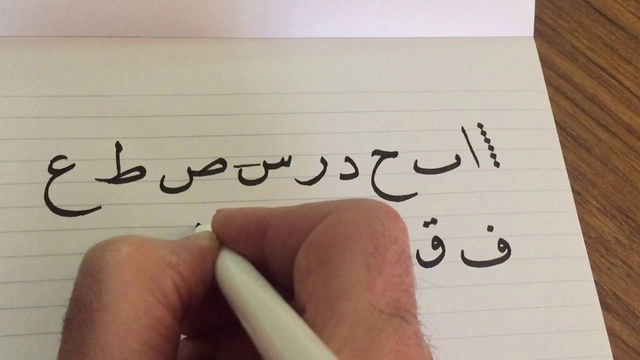 ا ٮ ح د ر س ص ط ع
ف ق